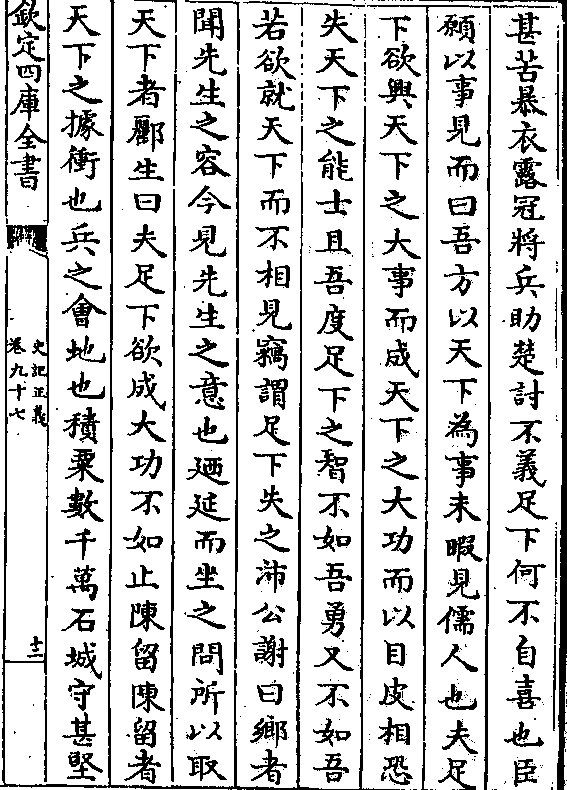 甚苦暴衣露冠將兵助楚討不義足下何不自喜也臣
願以事見而曰吾方以天下為事未暇見儒人也夫足
下欲興天下之大事而成天下之大功而以目皮相恐
失天下之能士且吾度足下之智不如吾勇又不如吾
若欲就天下而不相見竊謂足下失之沛公謝曰鄉者
聞先生之容今見先生之意也廼延而坐之問所以取
天下者酈生曰夫足下欲成大功不如止陳留陳留者
天下之據衝也兵之會地也積粟數千萬石城守甚堅
欽定四庫全書
史記正義
卷九十七
十二